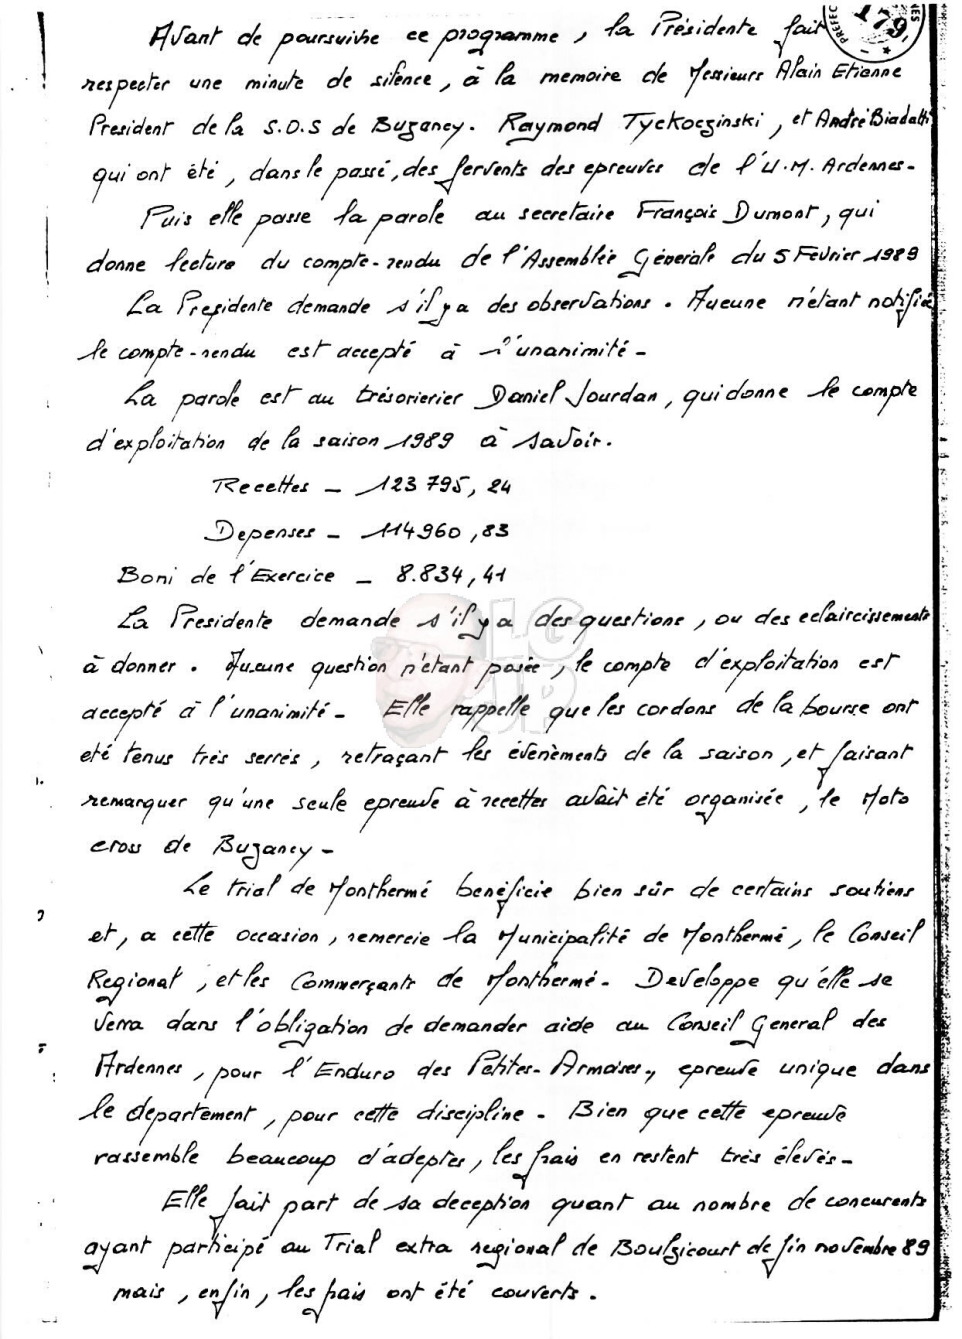 Avant de poursuivre ce programme, la Présidente fait
respecter une minute de silence, à la memoire de Messieurs Alain Etienne
President de la S.O.S de Buzancy. Raymond Tyckoczinski, et André Biadatti
qui ont été, dans le passé, des fervents des epreuves de l'U.M. Ardennes-
Puis elle passe la parole au secretaire François Dumont, qui
donne lecture du compte-rendu de l'Assemblée Génerale du 5 Fevrier 1989
La Presidente demande s'il y a des observations. Aucune n'étant notifiée
le compte-rendu est accepté à l'unanimité-
La parole est au trésorierier Daniel Jourdan, qui donne le compte
d'exploitation de la saison 1989 à savoir.
Recettes - 123 795, 24
Depenses - 114960, 83
Boni de l'Exercice - 8.834, 41
La Presidente demande s'il y a des questions, ou des eclaircissements
à donner. Aucune question n'étant posée, le compte d'exploitation est
accepté à l'unanimité- Elle rappelle que les cordons de la bourse ont
eté tenus très serrés, retraçant les évenèments de la saison, et faisant
remarquer qu'une seule epreuve à recettes avait été organisée, le Moto
cross de Buzancy-
Le trial de Monthermé benéficie bien sûr de certains soutiens
et, a cette occasion, remercie la Municipalité de Monthermé, le Conseil
Regional, et les Commerçants de Monthermé- Developpe qu'elle se
verra dans l'obligation de demander aide au Conseil General des
Ardennes, pour l'Enduro des Petites-Armoises, epreuve unique dans
le departement, pour cette discipline- Bien que cette epreuve
rassemble beaucoup d'adeptes, les frais en restent très élevés-
Elle fait part de sa deception quant au nombre de concurents
ayant participé au Trial extra regional de Boulzicourt de fin novembre 89
mais, enfin, les frais ont été couverts.
PREFEC
179
NES
LG
JP